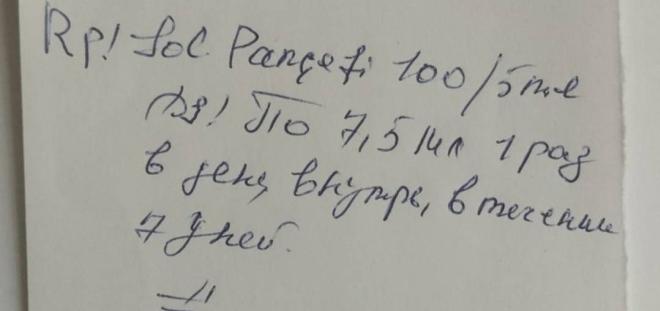 Rp! Sol. Pancefi 100/5мл
DS! По 7,5 мл 1 раз
в день, внутрь, в течение
7 дней.
#